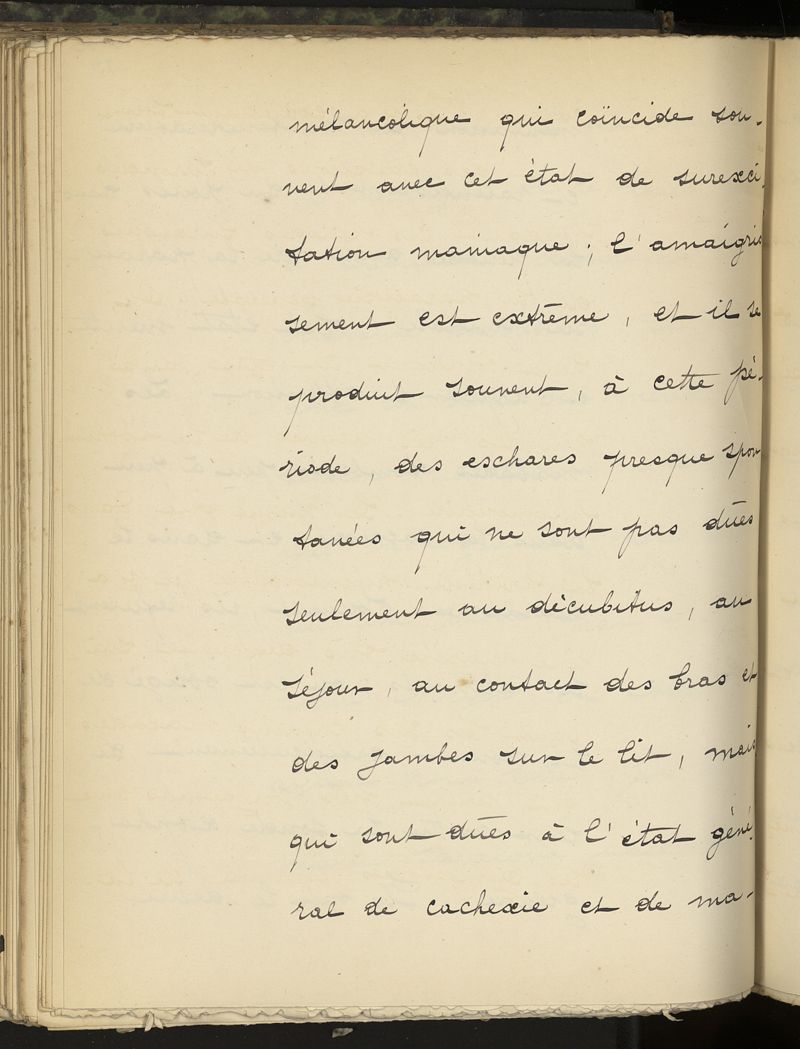 mélancolique qui coïncide sou-
vent avec cet état de surexci-
tation maniaque ; l'amaigris
sement est extrême, et il se
produit souvent, à cette pé-
riode, des eschares presque spon
tanées qui ne sont pas dûes
seulement au décubitus, au
séjour, au contact des bras et
des jambes sur le lit, mais
qui sont dûes à l'état géné-
ral de cachexie et de ma-